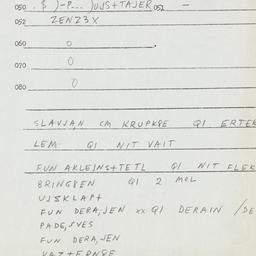 050 . $ )-P--- )UJS+TAJER 051 -
052 ZENZ3X
060 0 .
070 0
080 0
SLAVJAN CM KRUPKGE QI ERTEK
LEM QI NIT VAIT
FUN AKLEINS+TETL QI NIT FLEK
BRINGPEN QI 2 MOL
UJSKLAP+
FUN DERA,JEN xx QI DERAIN /DE
PADE,SVES
FUN DERA,JEN